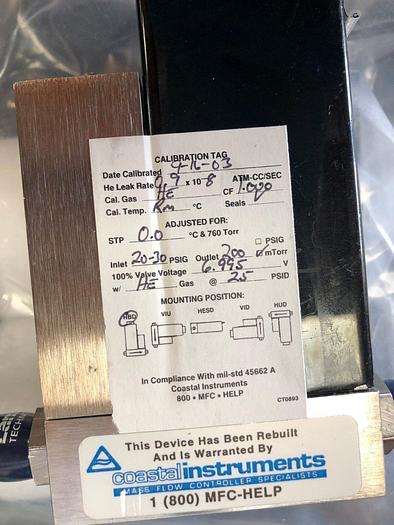 CALIBRATION TAG
Date Calibrated 4-16-03
He Leak Rate 0.9 x 10-8 ATM-CC/SEC
Cal. Gas HE CF 1.000
Cal. Temp. Rm °C Seals
ADJUSTED FOR:
STP 0.0 °C & 760 Torr
□ PSIG
Inlet 20-30 PSIG Outlet 200 ☑ mTorr
100% Valve Voltage 6.995 V
w/ HE Gas @ 25 PSID
MOUNTING POSITION:
HBD VIU HESD VID HUD
In Compliance With mil-std 45662 A
Coastal Instruments
800 • MFC • HELP
CT0893
This Device Has Been Rebuilt
And Is Warranted By
coastal instruments
MASS FLOW CONTROLLER SPECIALISTS
1 (800) MFC-HELP